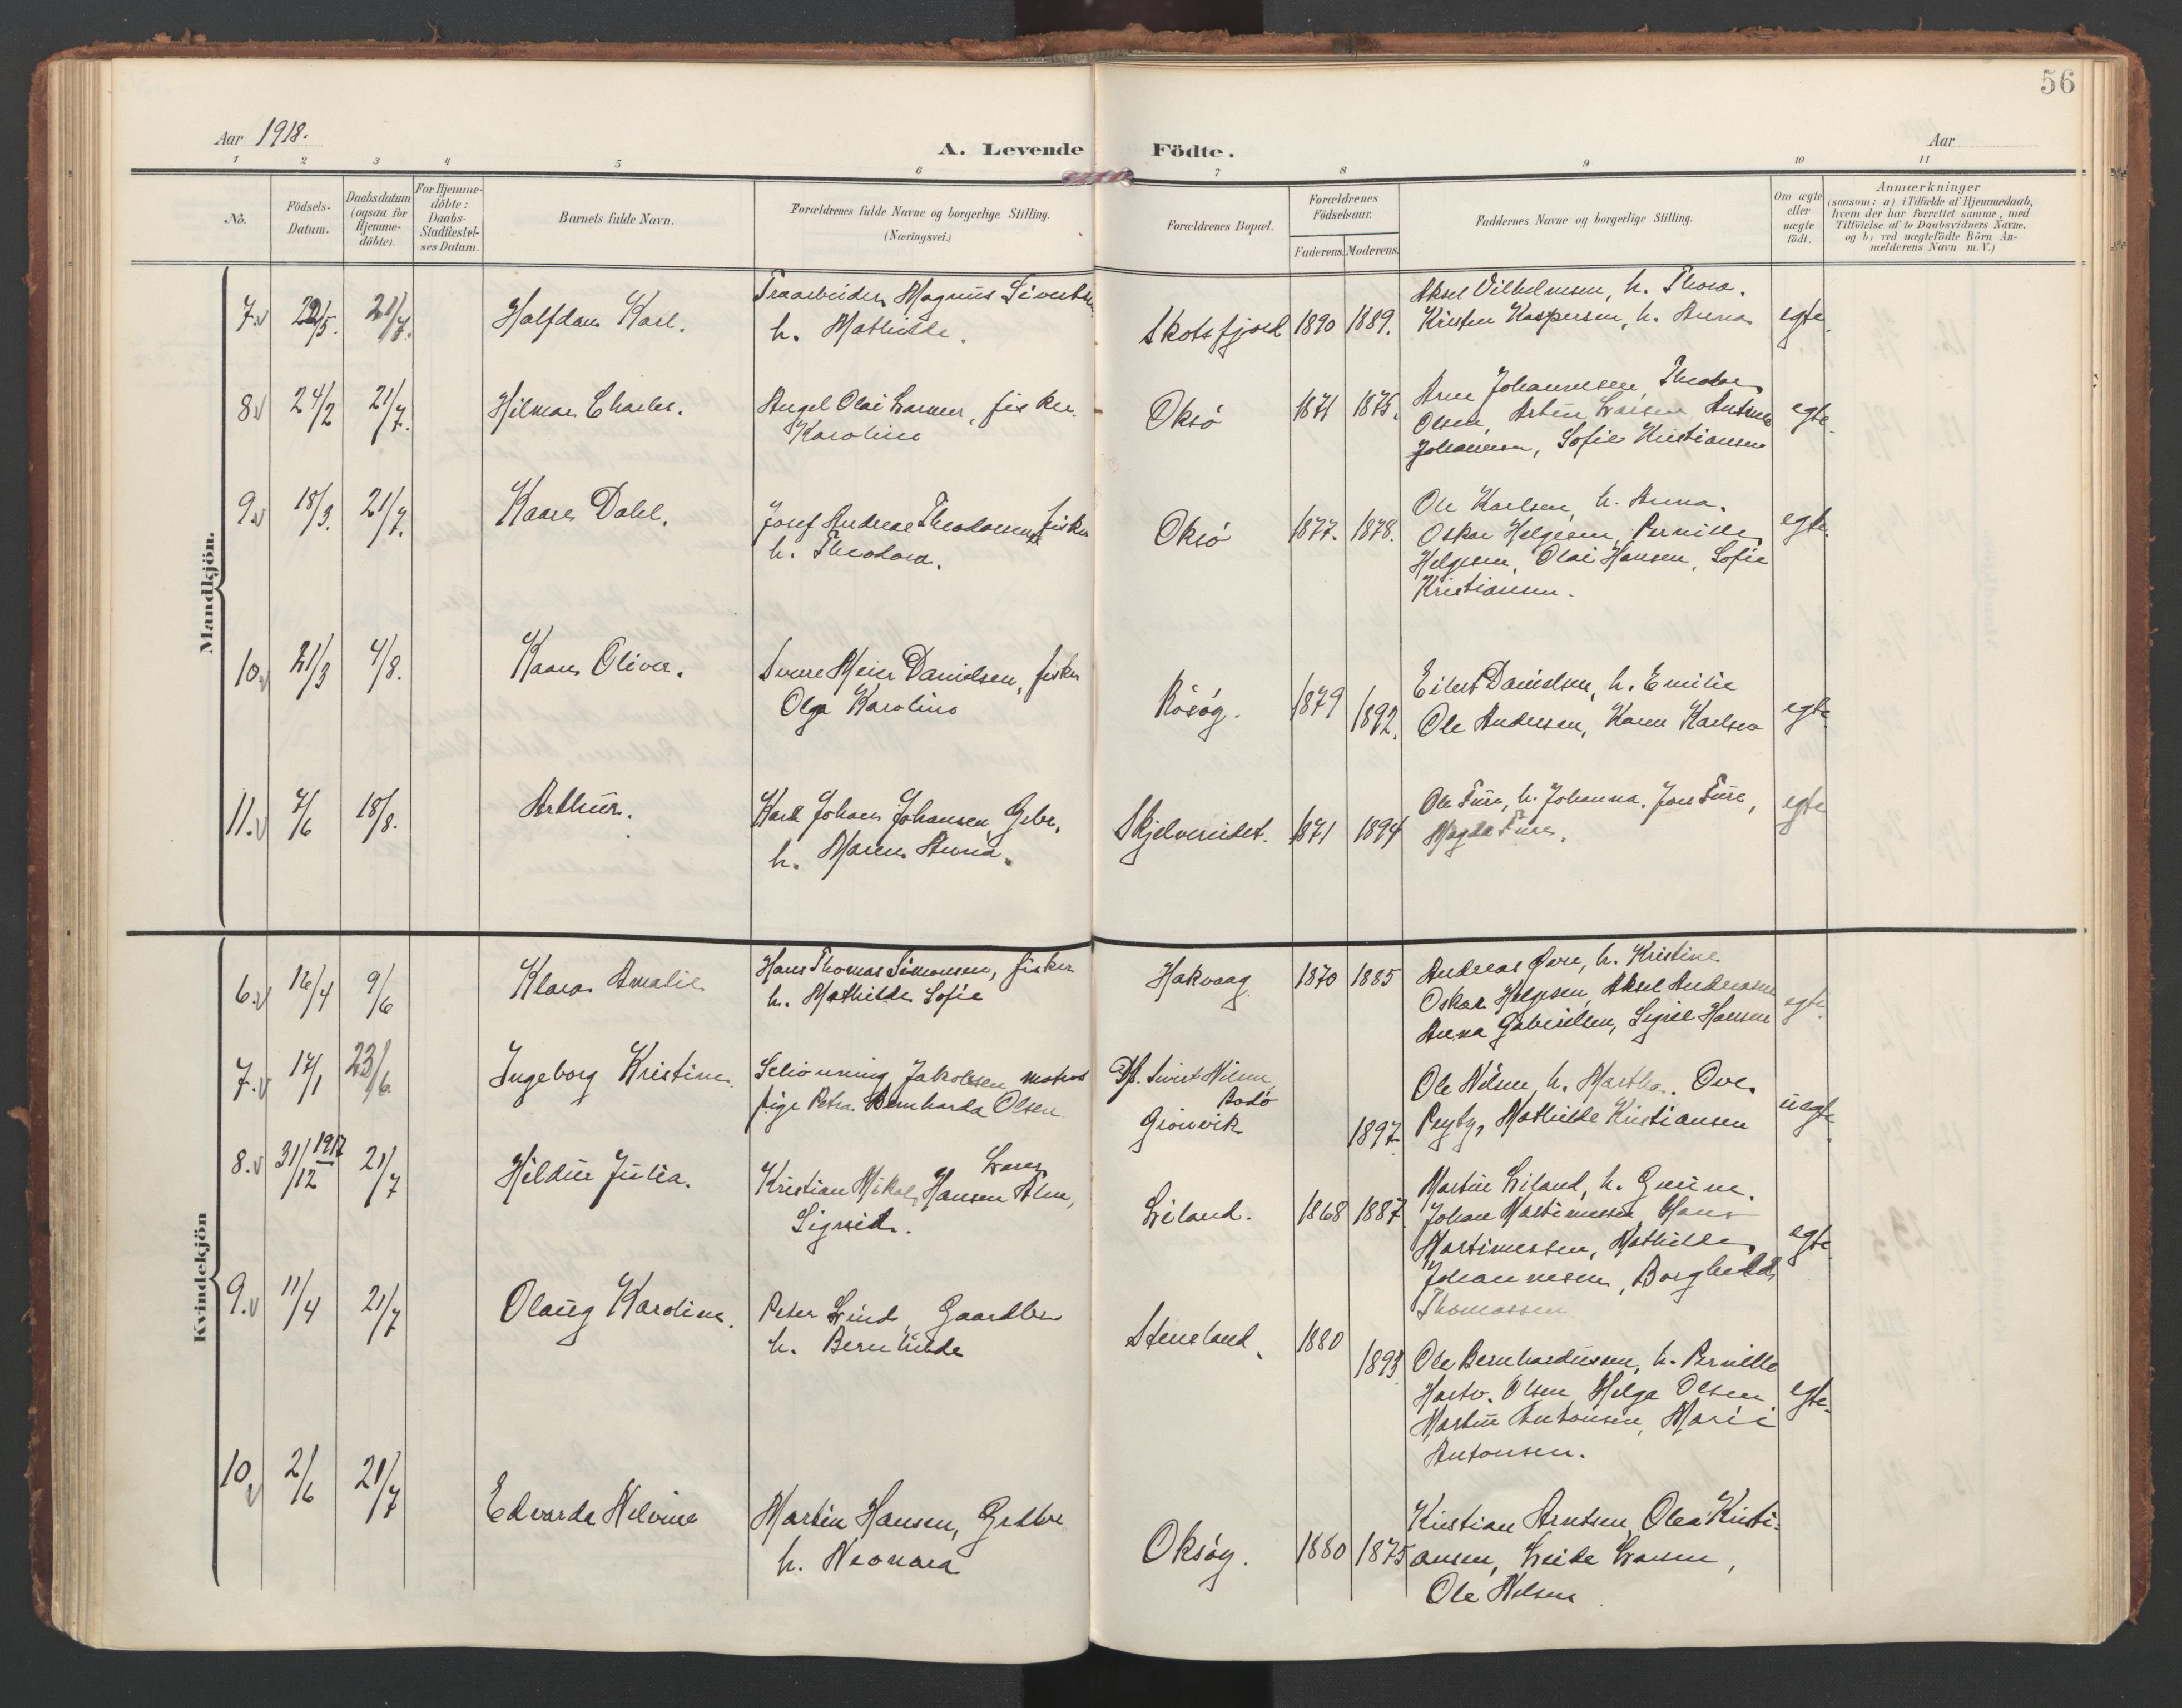 56
Aar 1918.
A. Levende Födte.
Aar
1 2 3 4 5 6 7 8 9 10 11
No.
Födsels-
Datum.
Daabsdatum
(ogsaa for
Hjemme-
döbte).
For Hjemme-
döbte:
Daabs-
Stadfæstel-
ses Datum.
Barnets fulde Navn.
Forældrenes fulde Navne og borgerlige Stilling.
(Næringsvei.)
Forældrenes Bopæl.
Forældrenes
Födselsaar.
Faderens. Moderens.
Faddernes Navne og borgerlige Stilling.
Om ægte
eller
uægte
födt.
Anmærkninger
(saasom: a) i Tilfælde af Hjemmedaab,
hvem der har forrettet samme, med
Tilföielse af to Daabsvidners Navne.
og b) ved uægtefödte Börn An-
melderens Navn m. V.)
Mandkjön.
7. 22/5. 21/7. Halfdan Karl.
Magnus Sivertsen
h. Mathilde.
Skotsfjord 1890 1889.
Aksel Vilhelmsen, h. Thora.
Kristen Kaspersen, h. Anna
egte.
8 24/2 21/7. Hilmar Charles.
Angel Olai Larsen, fisker.
Karoline
Oksö 1871 1875.
Arne Johannesen, Theodor
Olsen, Artur Larsen
Johansen, Sofie Kristiansen
egte.
9. 18/3. 21/7. Kaare Dahl.
Josef Andreas Theodorsen, fisker
h. Theodora.
Oksö 1877. 1878.
Ole Karlsen, h. Anna.
Oskar Helgesen, Pernille
Helgesen, Olai Hansen, Sofie
Kristiansen.
egte.
10. 21/3 4/8. Kaare Oliver.
Meier Danielsen, fisker
Olga Karoline
Rösög. 1879 1892.
Eilert Danielsen, h. Emilie
Ole Andersen, Karen Karlsen
egte.
11. 7/6 18/8. Arthur.
Karl Johan Johansen, Gbr.
h. Maren Anna.
Skjelvereidet. 1871 1894
Ole Fure, h. Johanna. Jon Fure,
Magda Fure.
egte
Kvindekjön
6. 16/4 9/6 Klara Amalie
Hans Thomas Simonsen, fisker
h. Mathilde Sofie
Hakvaag. 1870 1885
Andreas Övre, h. Kristine
Oskar Helgesen, Aksel Andreassen
Anna Gabrielsen, Sigrid Hansen
egte.
7. 17/1 23/6. Ingeborg Kristine.
Schönning Jakobsen matros
pige Petra Bernharda Olsen
Df. Sivert Nilsen,
Bodö
Grönvik 1897
Ole Nilsen, h. Martha. Ove
Mathilde Kristiansen
uegte.
8. 31/12 1917 21/7 Hildur Julia.
Kristian Nikolai Hansen
Sigrid.
Leiland. 1868 1887
Martin Leiland, h. Gurine.
Johan Martinussen, Hans
Martinussen, Mathilde
Johannesen, Borghild
Thomassen
egte.
9. 11/4 21/7 Olaug Karoline.
Peter Lind, Gaardbr
h. Bernhilde
Steneland. 1880 1893
Ole Bernhardussen, h. Pernille
Hartv. Olsen, Helga Olsen
Martin Antonsen, Marie
Antonsen.
egte.
10. 2/6 21/7 Edvarda Nilvine
Martin Hansen, Grdbr
h. Neonora
Oksög. 1880 1875
Kristian Arntsen, Olea Kristi-
ansen, Larsen,
Ole Nilsen